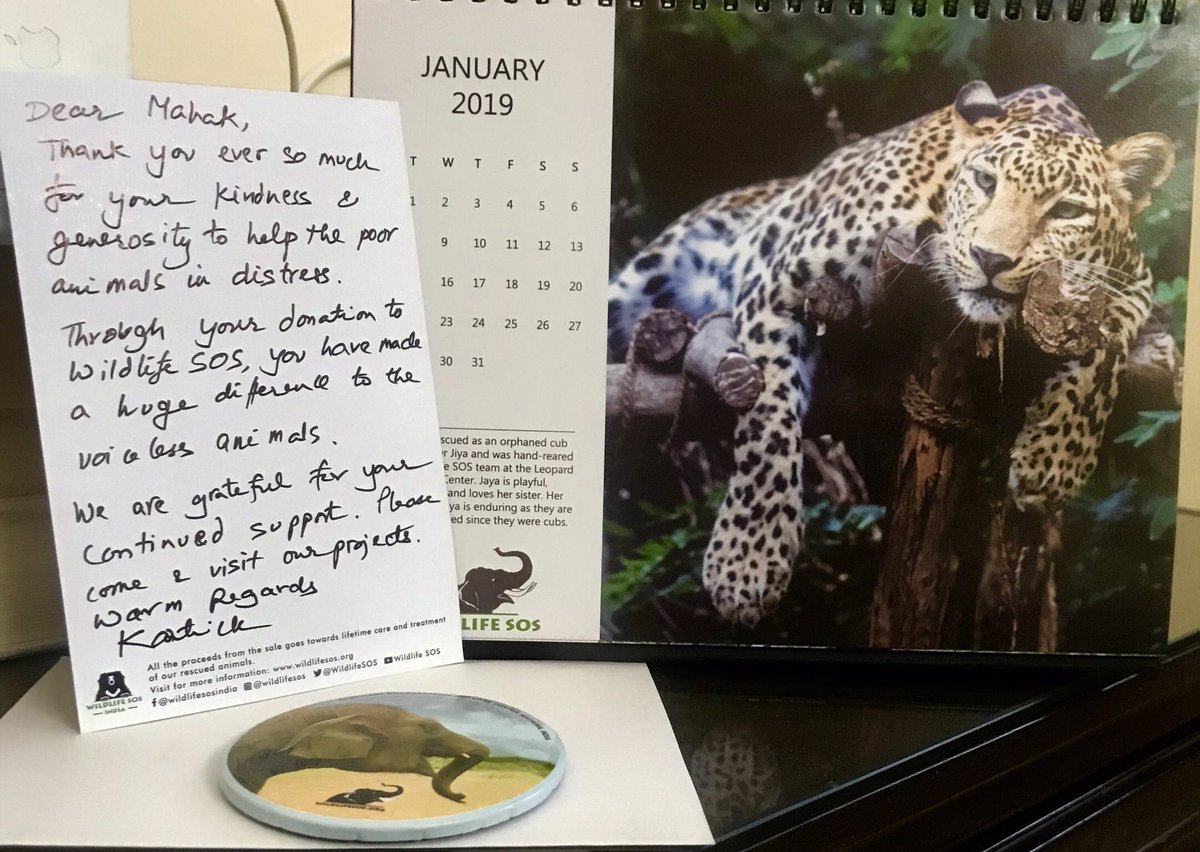 Dear Mahak,
Thank you ever so much
for your kindness &
generosity to help the poor
animals in distress.
Through your donation to
Wildlife SOS, you have made
a huge difference to the
voiceless animals.
We are grateful for your
continued support. Please
come & visit our projects.
Warm Regards
Karthick
All the proceeds from the sale goes towards lifetime care and treatment
of our rescued animals.
Visit for more information: www.wildlifesos.org
@wildlifesosindia @wildlifesos @WildlifeSOS Wildlife SOS
WILDLIFE SOS
INDIA
JANUARY
2019
T W T F S S
1 2 3 4 5 6
9 10 11 12 13
16 17 18 19 20
23 24 25 26 27
30 31
scued as an orphaned cub
r Jiya and was hand-reared
e SOS team at the Leopard
Center. Jaya is playful,
and loves her sister. Her
ya is enduring as they are
ed since they were cubs.
LIFE SOS